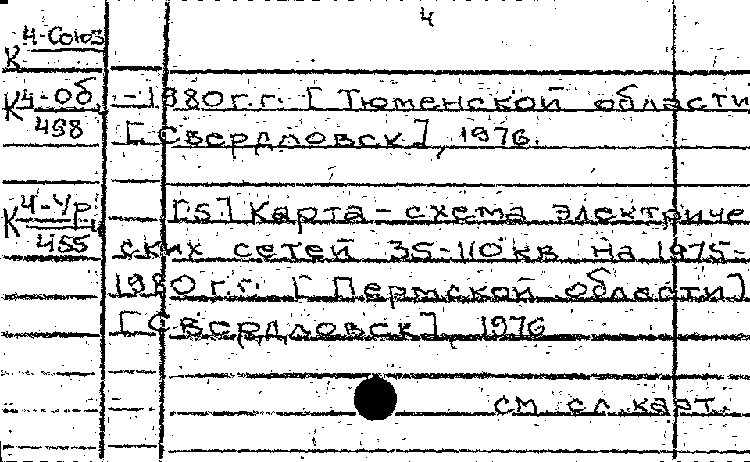 4
К 4-Союз
К 4-Об. 498
-1980 г.г. [Тюменской области]
[Свердловск], 1976.
К 4-Ур 455
[5] Карта-схема электриче
ских сетей 35-110 кв на 1975-
1980 г.г. [Пермской области]
[Свердловск], 1976
см. сл. карт.